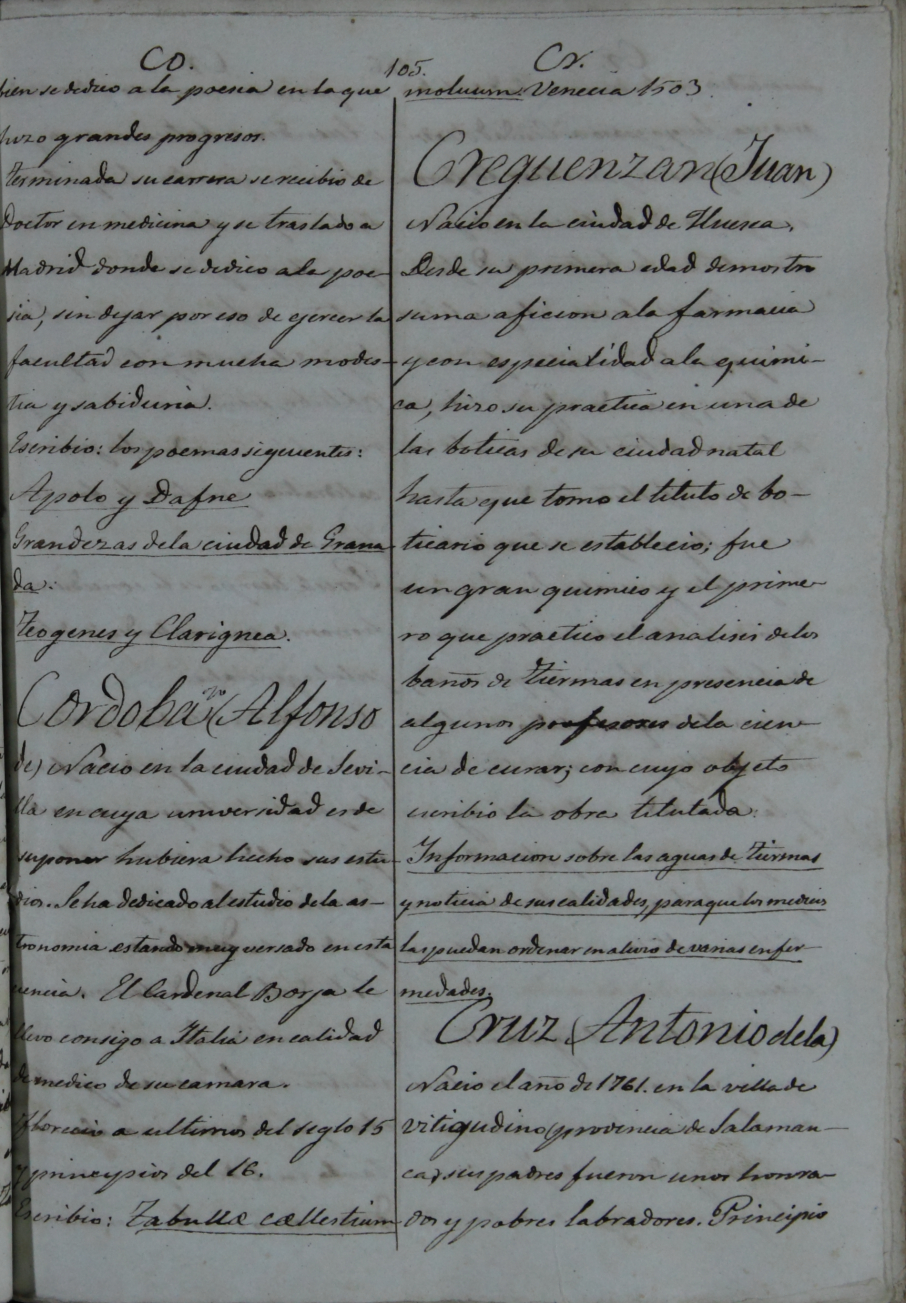 CO.
105.
Cr.
bien se dedico a la poesia en la que
hizo grandes progresos.
terminada su carrera se recibio de
doctor en medicina y se traslado a
Madrid donde se dedico a la poe-
sia, sin dejar por eso de ejercer la
facultad con mucha modes-
tia y sabiduria.
Escribio: los poemas siguientes:
Apolo y Dafne
Grandezas de la ciudad de Grana-
da:
Teogenes y Clarignea.
Cordoba (Alfonso
de) Nacio en la ciudad de Sevi-
lla en cuya universidad es de
suponer hubiera hecho sus estu-
dios. Se ha dedicado al estudio de la as-
tronomia estando muy versado en esta
ciencia. El Cardenal Borja le
llevo consigo a Italia en calidad
de medico de su camara.
Florecio a ultimos del siglo 15
y principios del 16.
Escribio: Tabullæ cællestium
motuum Venecia 1503.
Creguenzan (Juan)
Nacio en la ciudad de Huesca.
Desde su primera edad demostro
suma aficion a la farmacia
y con especialidad a la quimi-
ca, hizo su practica en una de
las boticas de su ciudad natal
hasta que tomo el titulo de bo-
ticario que se establecio; fue
un gran quimico y el prime-
ro que practico el analisis de los
baños de Tiermas en presencia de
algunos profesores de la cien-
cia de curar; con cuyo objeto
escribio la obra titulada:
Informacion sobre las aguas de Tiermas
y noticia de sus calidades, para que los medicos
las puedan ordenar en alivio de varias enfer-
medades.
Cruz (Antonio de la)
Nacio el año de 1761. en la villa de
Vitigudino (provincia de Salaman-
ca) sus padres fueron unos honra-
dos y pobres labradores. Principio